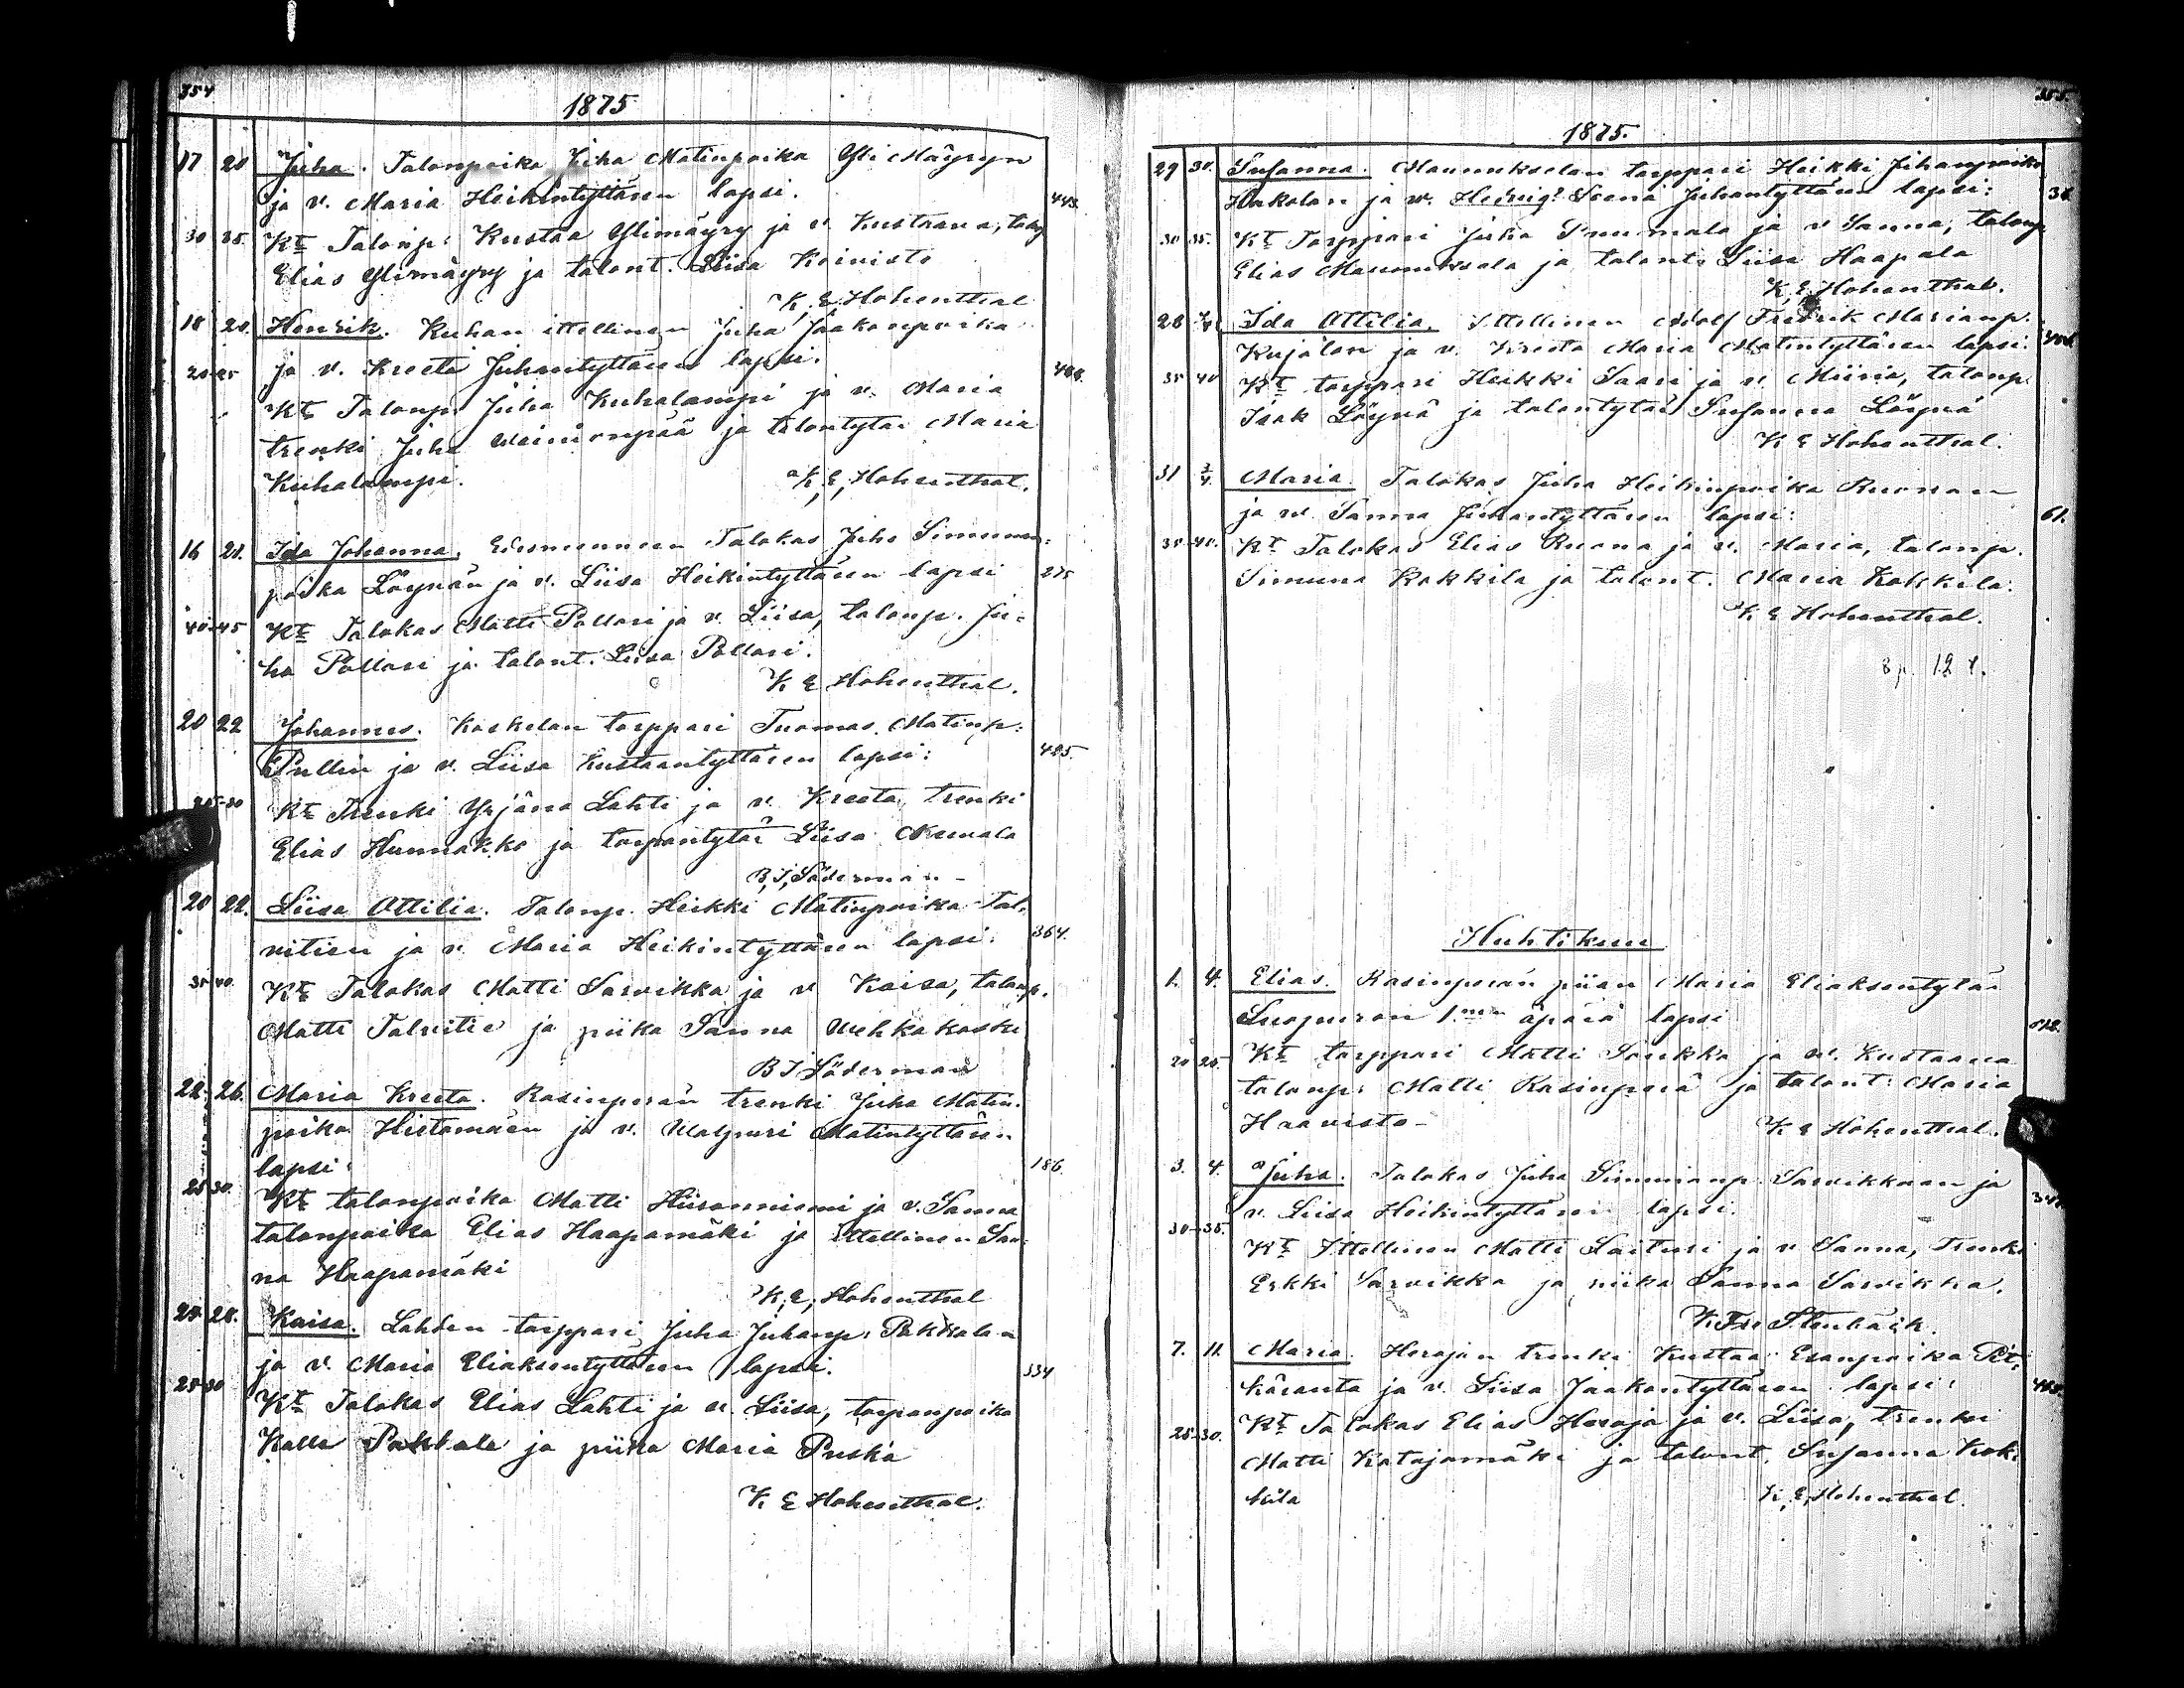 354
1875
17 21 Juha. Talonpoika Juha Matinpoika Yli Mäyryn
ja v. Maria Heikintyttären lapsi.
443.
30 35. Kt Talonp: Kustaa Ylimäyry ja v. Kustaava, talonp
Elias Ylimäyry ja talont. Liisa Koivisto
K, E, Hohenthal
18 21. Henrik. Kuhan ittellinen Juha Jaakonpoika
ja v. Kreeta Juhantyttären lapsi.
20-25
Kt Talonp. Juha Kuhalampi ja v. Maria
trenki Juha Wainionpää ja talontytär Maria
Kuhalampi. K, E, Hohenthal.
16 21. Ida Johanna. Talokas Juho Simunan-
poika Löynän ja v. Liisa Heikintyttären lapsi
275
40-45 Kt Talokas Matti Pollari ja v. Liisa, talonp. Ju-
ha Pollari ja talont. Liisa Pollari.
K E Hohenthal.
20 22 Johannes. Koskelan torppari Tuomas Matinp:
Pullin ja v. Liisa Kustaantyttären lapsi:
485.
25-30 Kt Trenki Yrjänä Lahti ja v. Kreeta, trenki
Elias Hunnakko ja torpantytär Liisa
B, J, Söderman -
20 22. Liisa Attilia. Talonp. Heikki Matinpoika Tal-
vitien ja v. Maria Heikintyttären lapsi.
364.
35 40. Kt Talokas Matti Sarvikka ja v Kaisa, talonp.
Matti Talvitie ja piika Sanna Wehkakoski
B J Söderman
22. 26. Maria Kreeta. Rasinperän trenki Juha Matin-
poika Hietamäen ja v. Walpuri Matintyttären
lapsi:
186.
25 30. Kt talonpoika Matti Hiisanniemi ja v. Sanna
talonpoika Elias Haapamäki ja ittellinen San-
na Haapamäki
K, E, Hohenthal
24 28. Kaisa. Lahden torppari Juha Juhanp: Pakkalan
ja v. Maria Eliaksentyttären lapsi.
334
25-30
Kt Talokas Elias Lahti ja v. Liisa, torpanpoika
Kalle Pakkala ja piika Maria Puska
K E Hohenthal.
355.
1875.
29 31. Susanna. Maunukselan torppari Heikki Juhanpoika
Hakolan ja v. Hedvig? Serena Juhantyttären lapsi:
30 35. Kt Torppari Juha ja v Sanna, talonp
Elias Maunuksela ja talont. Liisa Haapala
K, E, Hohenthal.
28 Ida Attilia. Ittellinen Adolf Fredrik Marianp.
Kujalan ja v. Kreeta Maria Matintyttären lapsi.
35 40 Kt torppari Heikki Saari ja v. Miina, talonp.
Isak Löynä ja talontytär Susanna Löynä
K E Hohenthal.
31 Maria. Talokas Juha Heikinpoika Ruonan
ja v. Sanna Juhantyttären lapsi:
61.
35-40. Kt Talokas Elias Ruona ja v. Maria, talonp.
Simuna Kokkila ja talont. Maria Kokkila.
K E Hohenthal.
Huhtikuu
1. 4. Elias. Rasinperän piian Maria Eliaksentytär
1.nen äpärä lapsi
20 25. Kt torppari Matti ja v. Kustaava
talonp: Matti Rasinperä ja talont: Maria
Haavisto- K E Hohenthal.
3. 4. Juha. Talokas Juha Simunanp. Sarvikkaan ja
v. Liisa Heikintyttären lapsi.
30-35.
Kt Ittellinen Matti Laituri ja v Sanna, Trenki
Erkki Sarvikka ja piika Sanna Sarvikka.
K. Fr. Stenbäck.
7. 11. Maria. Herajän trenki Kustaa Esanpoika Pit-
käranta ja v. Liisa Jaakontyttären lapsi:
25-30. Kt Talokas Elias Heräjä ja v. Liisa, trenki
Matti Katajamäki ja talont. Susanna Kok-
kila K, E, Hohenthal.